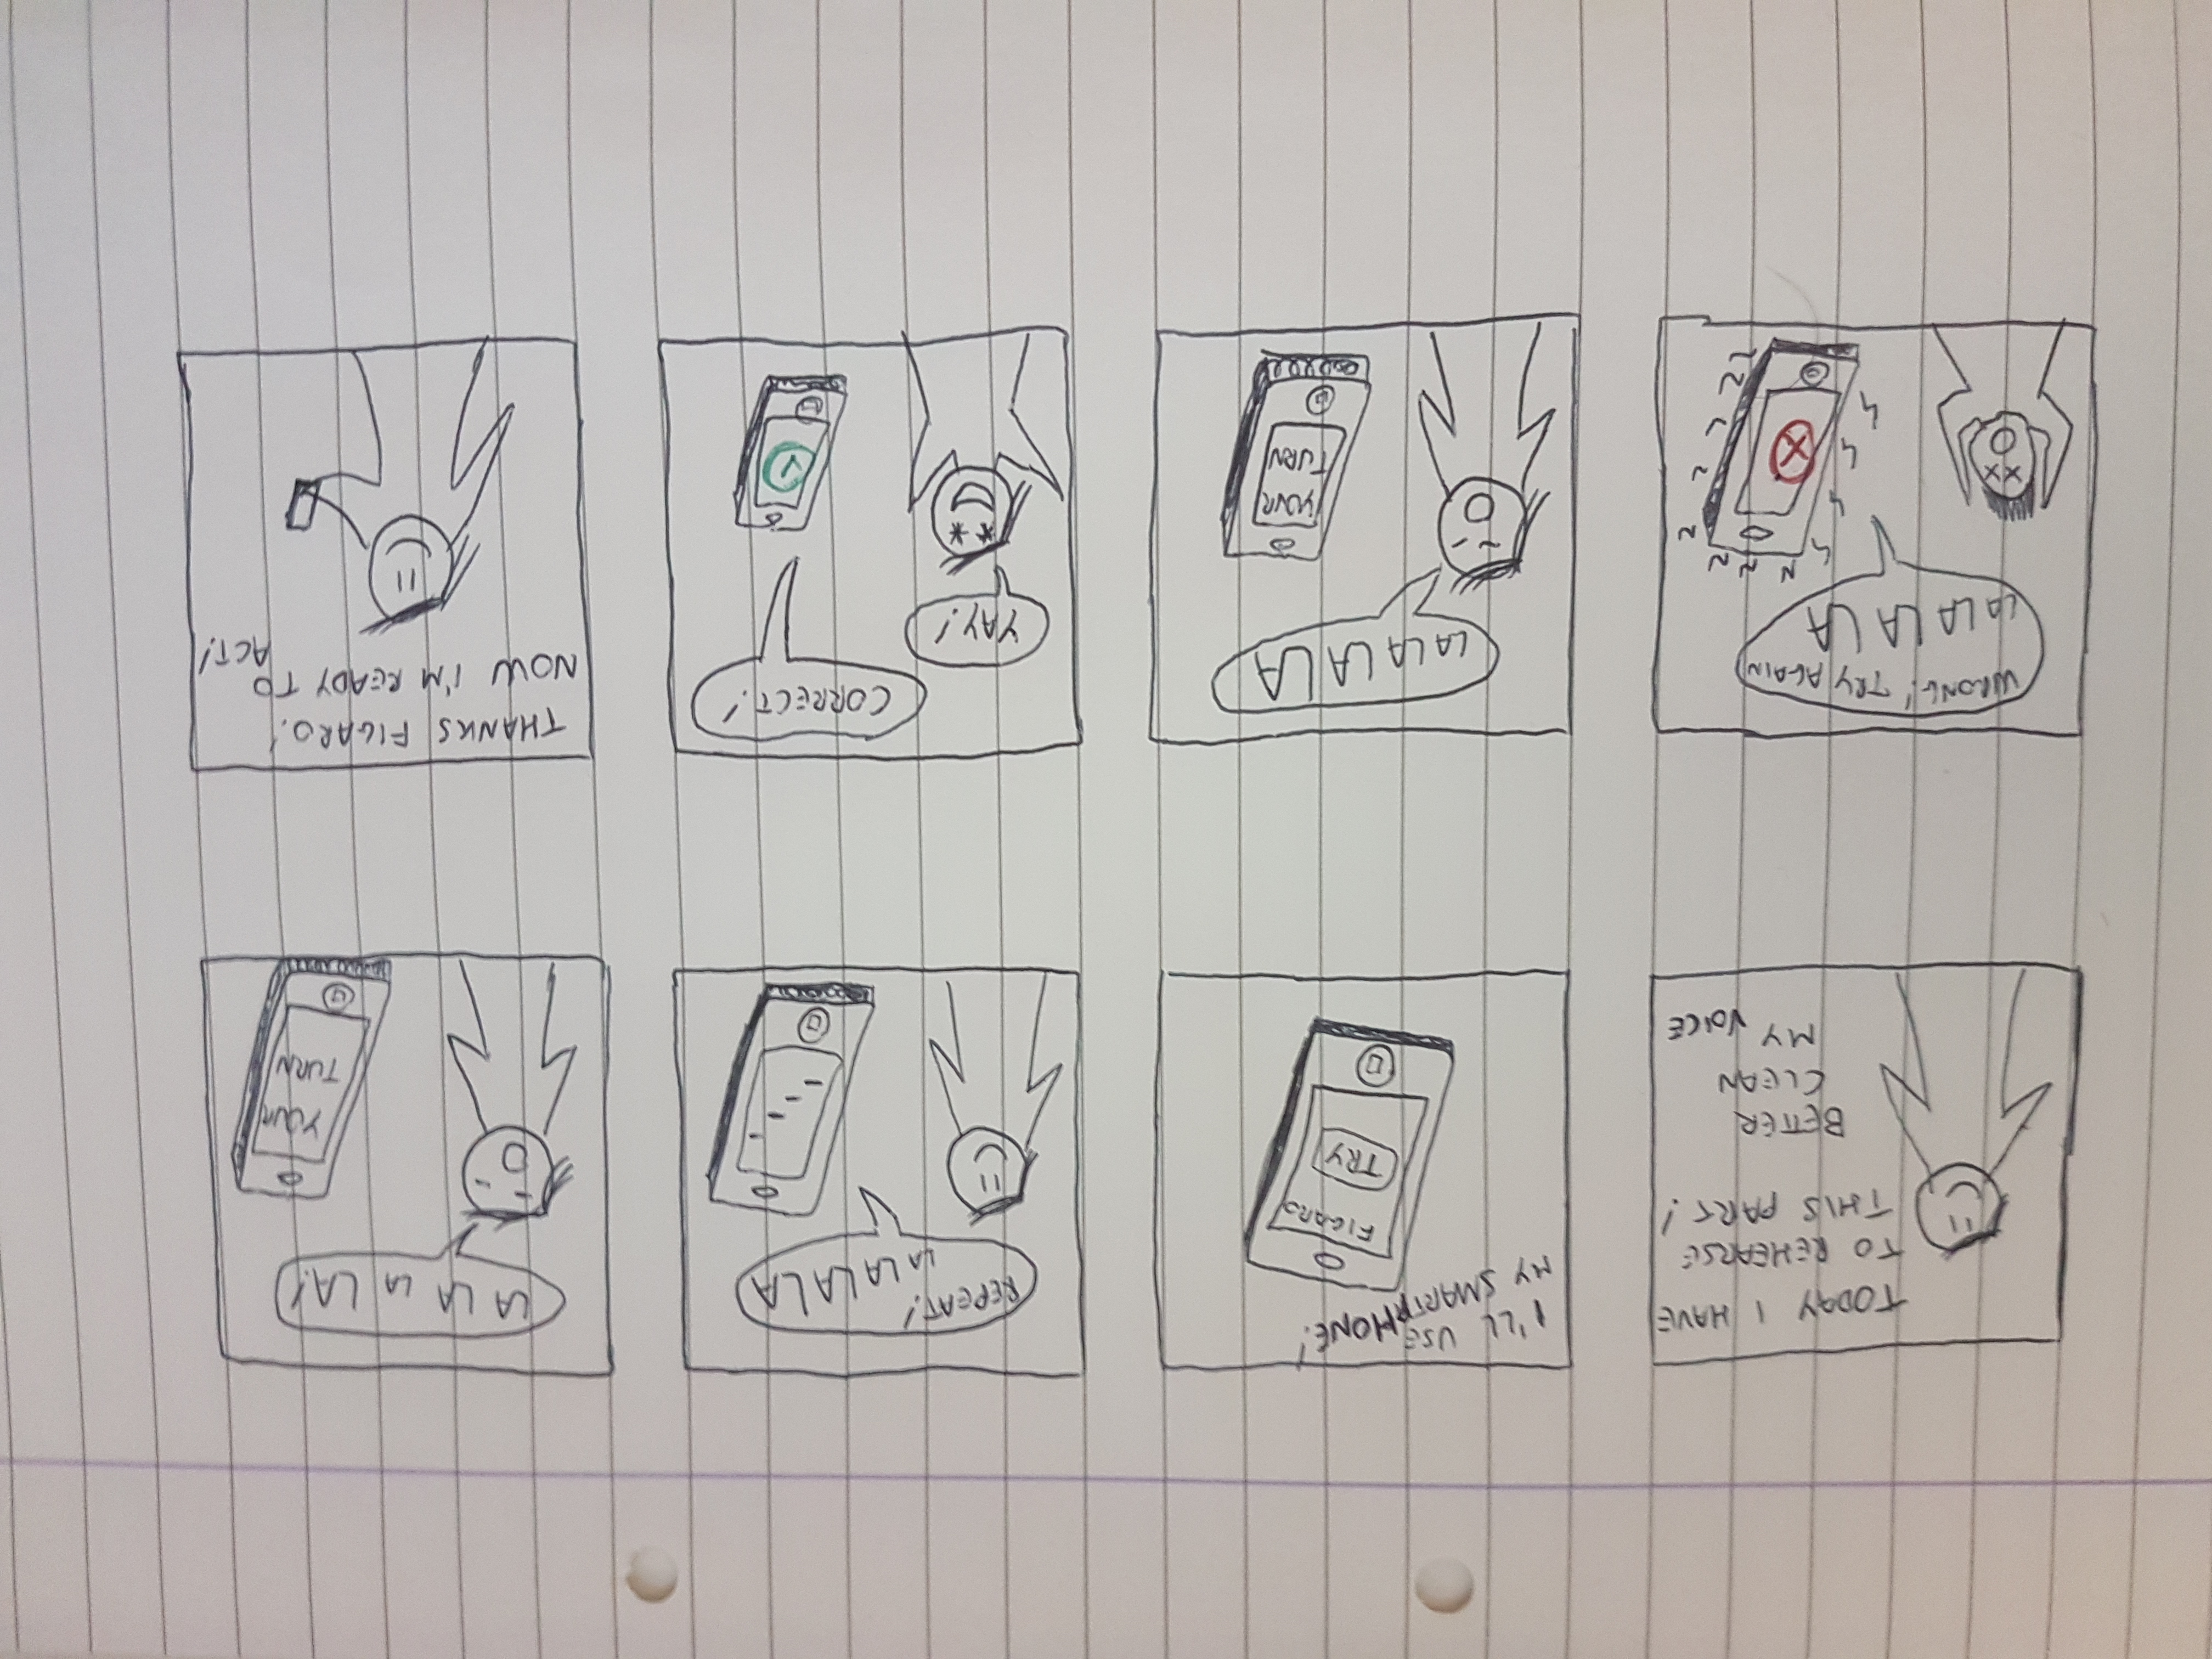 TODAY I HAVE
TO REHEARSE
THIS PART!
BETTER
CLEAN
MY VOICE
I'LL USE
MY SMARTPHONE!
FIGARO
TRY
REPEAT!
LA LA LA LA
LA LA LA LA!
YOUR
TURN
WRONG! TRY AGAIN
LA LA LA LA
LA LA LA LA
YOUR
TURN
CORRECT!
YAY!
THANKS FIGARO!
NOW I'M READY TO
ACT!